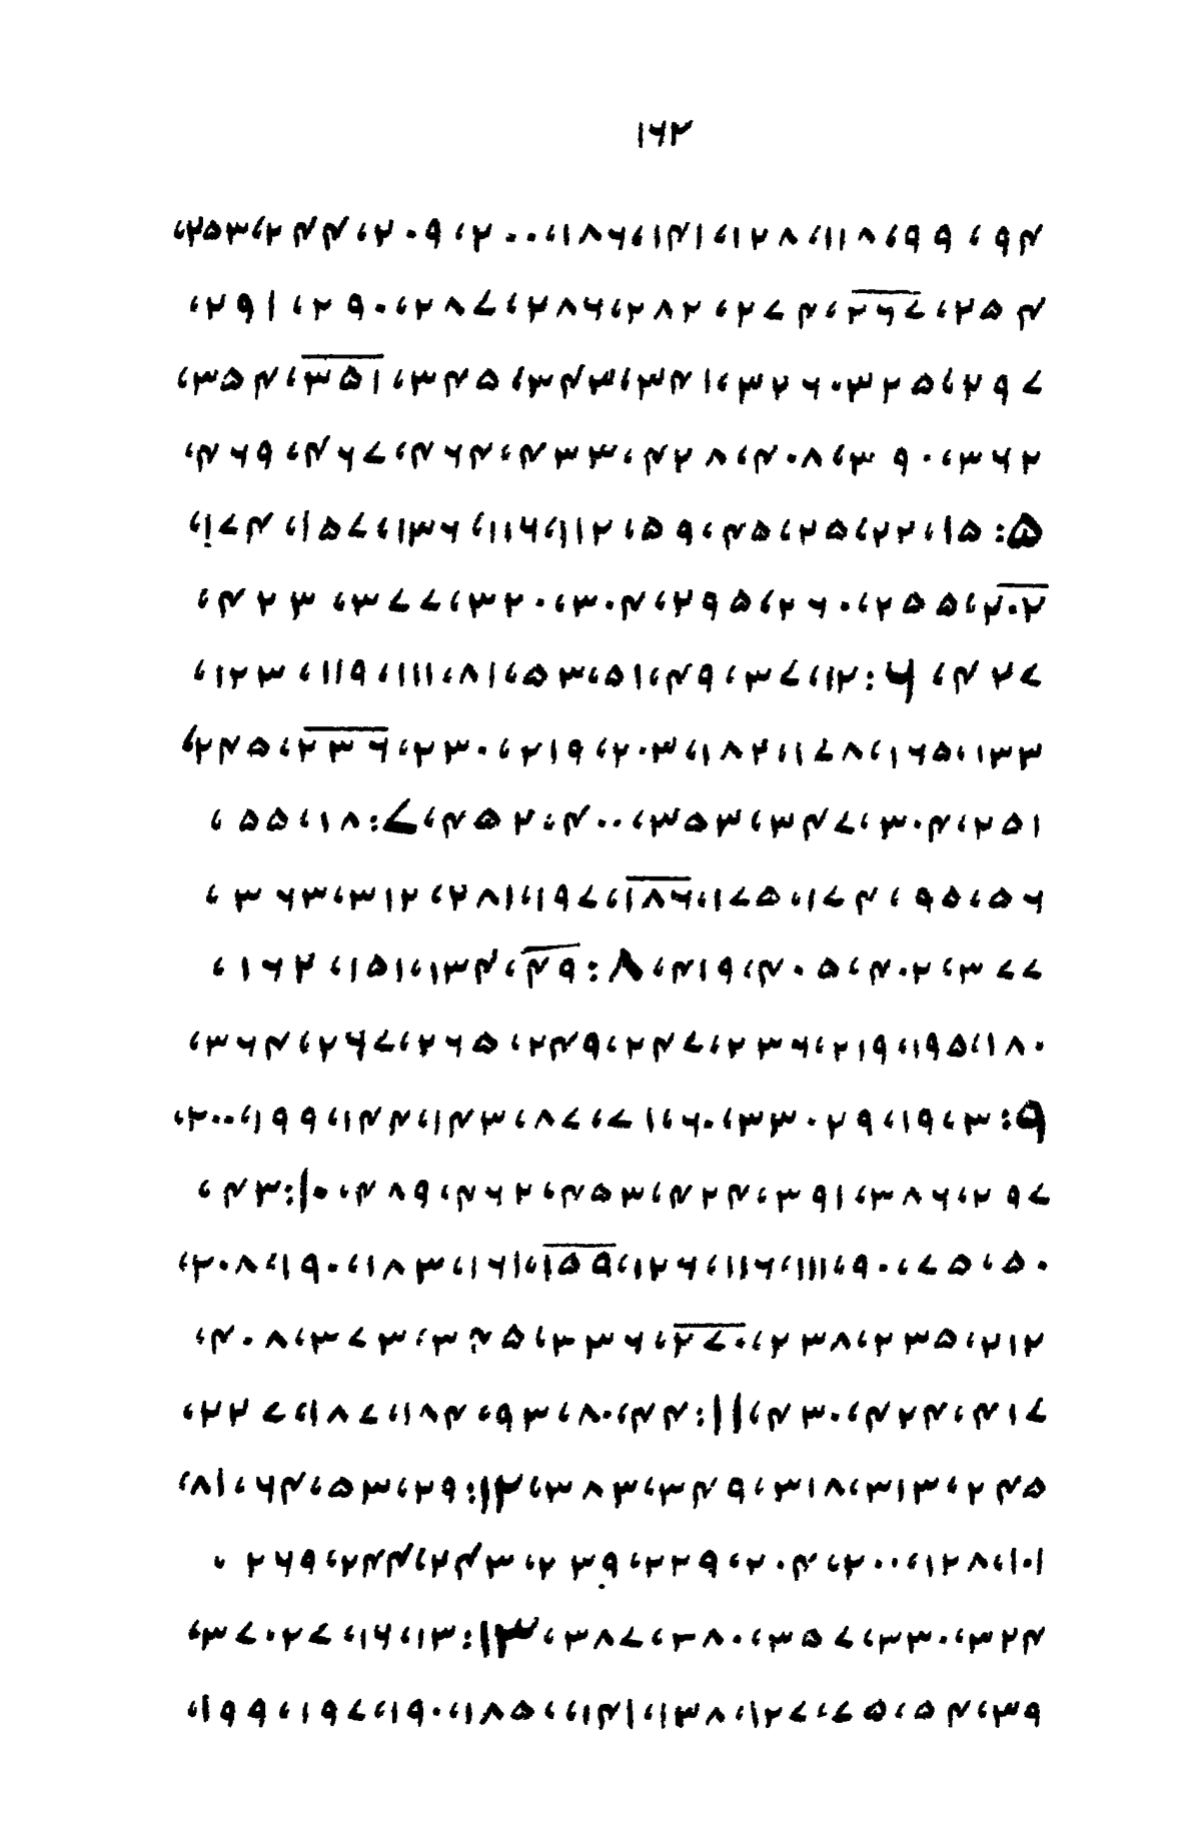 ۱۶۲
۹۴، ۹۹، ۱۱۸، ۱۲۸، ۱۴۱، ۱۸۶، ۲۰۰، ۲۰۹، ۲۴۴، ۲۵۳،
۲۵۴، ۲۶۷، ۲۷۴، ۲۸۲، ۲۸۶، ۲۸۷، ۲۹۰، ۲۹۱،
۲۹۷، ۳۲۵، ۳۲۶، ۳۴۱، ۳۴۳، ۳۴۵، ۳۵۱، ۳۵۴،
۳۶۲، ۳۹۰، ۴۰۸، ۴۲۸، ۴۳۳، ۴۶۴، ۴۶۷، ۴۶۹،
۵: ۱۵، ۲۲، ۲۵، ۵۴، ۵۹، ۱۱۲، ۱۱۶، ۱۳۶، ۱۵۷، ۱۷۴،
۲۰۲، ۲۵۵، ۲۶۰، ۲۹۵، ۳۰۴، ۳۲۰، ۳۷۷، ۴۲۳،
۴۲۷، ۶: ۱۲، ۳۷، ۴۹، ۵۱، ۵۳، ۸۱، ۱۱۱، ۱۱۹، ۱۲۳،
۱۳۳، ۱۶۵، ۱۷۸، ۱۸۲، ۲۰۳، ۲۱۹، ۲۳۰، ۲۳۶، ۲۴۵،
۲۵۱، ۳۰۴، ۳۴۷، ۳۵۳، ۴۰۰، ۴۵۲، ۷: ۱۸، ۵۵،
۵۶، ۹۵، ۱۷۴، ۱۷۵، ۱۸۶، ۱۹۷، ۲۸۱، ۳۱۲، ۳۶۳،
۳۷۷، ۴۰۲، ۴۰۵، ۴۱۹، ۸: ۴۹، ۱۳۴، ۱۵۱، ۱۶۲،
۱۸۰، ۱۹۵، ۲۱۹، ۲۳۶، ۲۴۷، ۲۴۹، ۲۶۵، ۲۶۷، ۳۶۴،
۹: ۳، ۱۹، ۲۹، ۳۳، ۶۰، ۷۱، ۸۷، ۱۴۳، ۱۴۴، ۱۹۹، ۲۰۰،
۲۹۷، ۳۸۶، ۳۹۱، ۴۲۴، ۴۵۳، ۴۶۲، ۴۸۹، ۱۰: ۴۳،
۵۰، ۷۵، ۹۰، ۱۱۱، ۱۱۶، ۱۲۶، ۱۵۹، ۱۶۱، ۱۸۳، ۱۹۰، ۲۰۸،
۲۱۲، ۲۳۵، ۲۳۸، ۲۷۰، ۳۳۶، ۳۴۵، ۳۷۳، ۴۰۸،
۴۱۷، ۴۲۴، ۴۳۰، ۱۱: ۴۴، ۸۰، ۹۳، ۱۸۴، ۱۸۷، ۲۲۷،
۲۴۵، ۳۱۳، ۳۱۸، ۳۴۹، ۳۸۳، ۱۲: ۲۹، ۵۳، ۶۴، ۸۱،
۱۰۱، ۱۲۸، ۲۰۰، ۲۰۴، ۲۲۹، ۲۳۹، ۲۴۳، ۲۴۴، ۲۶۹،
۳۲۴، ۳۳۰، ۳۵۷، ۳۸۰، ۳۸۷، ۱۳: ۱۳، ۱۶، ۲۷، ۳۷،
۳۹، ۵۴، ۷۵، ۱۲۷، ۱۳۸، ۱۴۱، ۱۸۵، ۱۹۰، ۱۹۷، ۱۹۹،